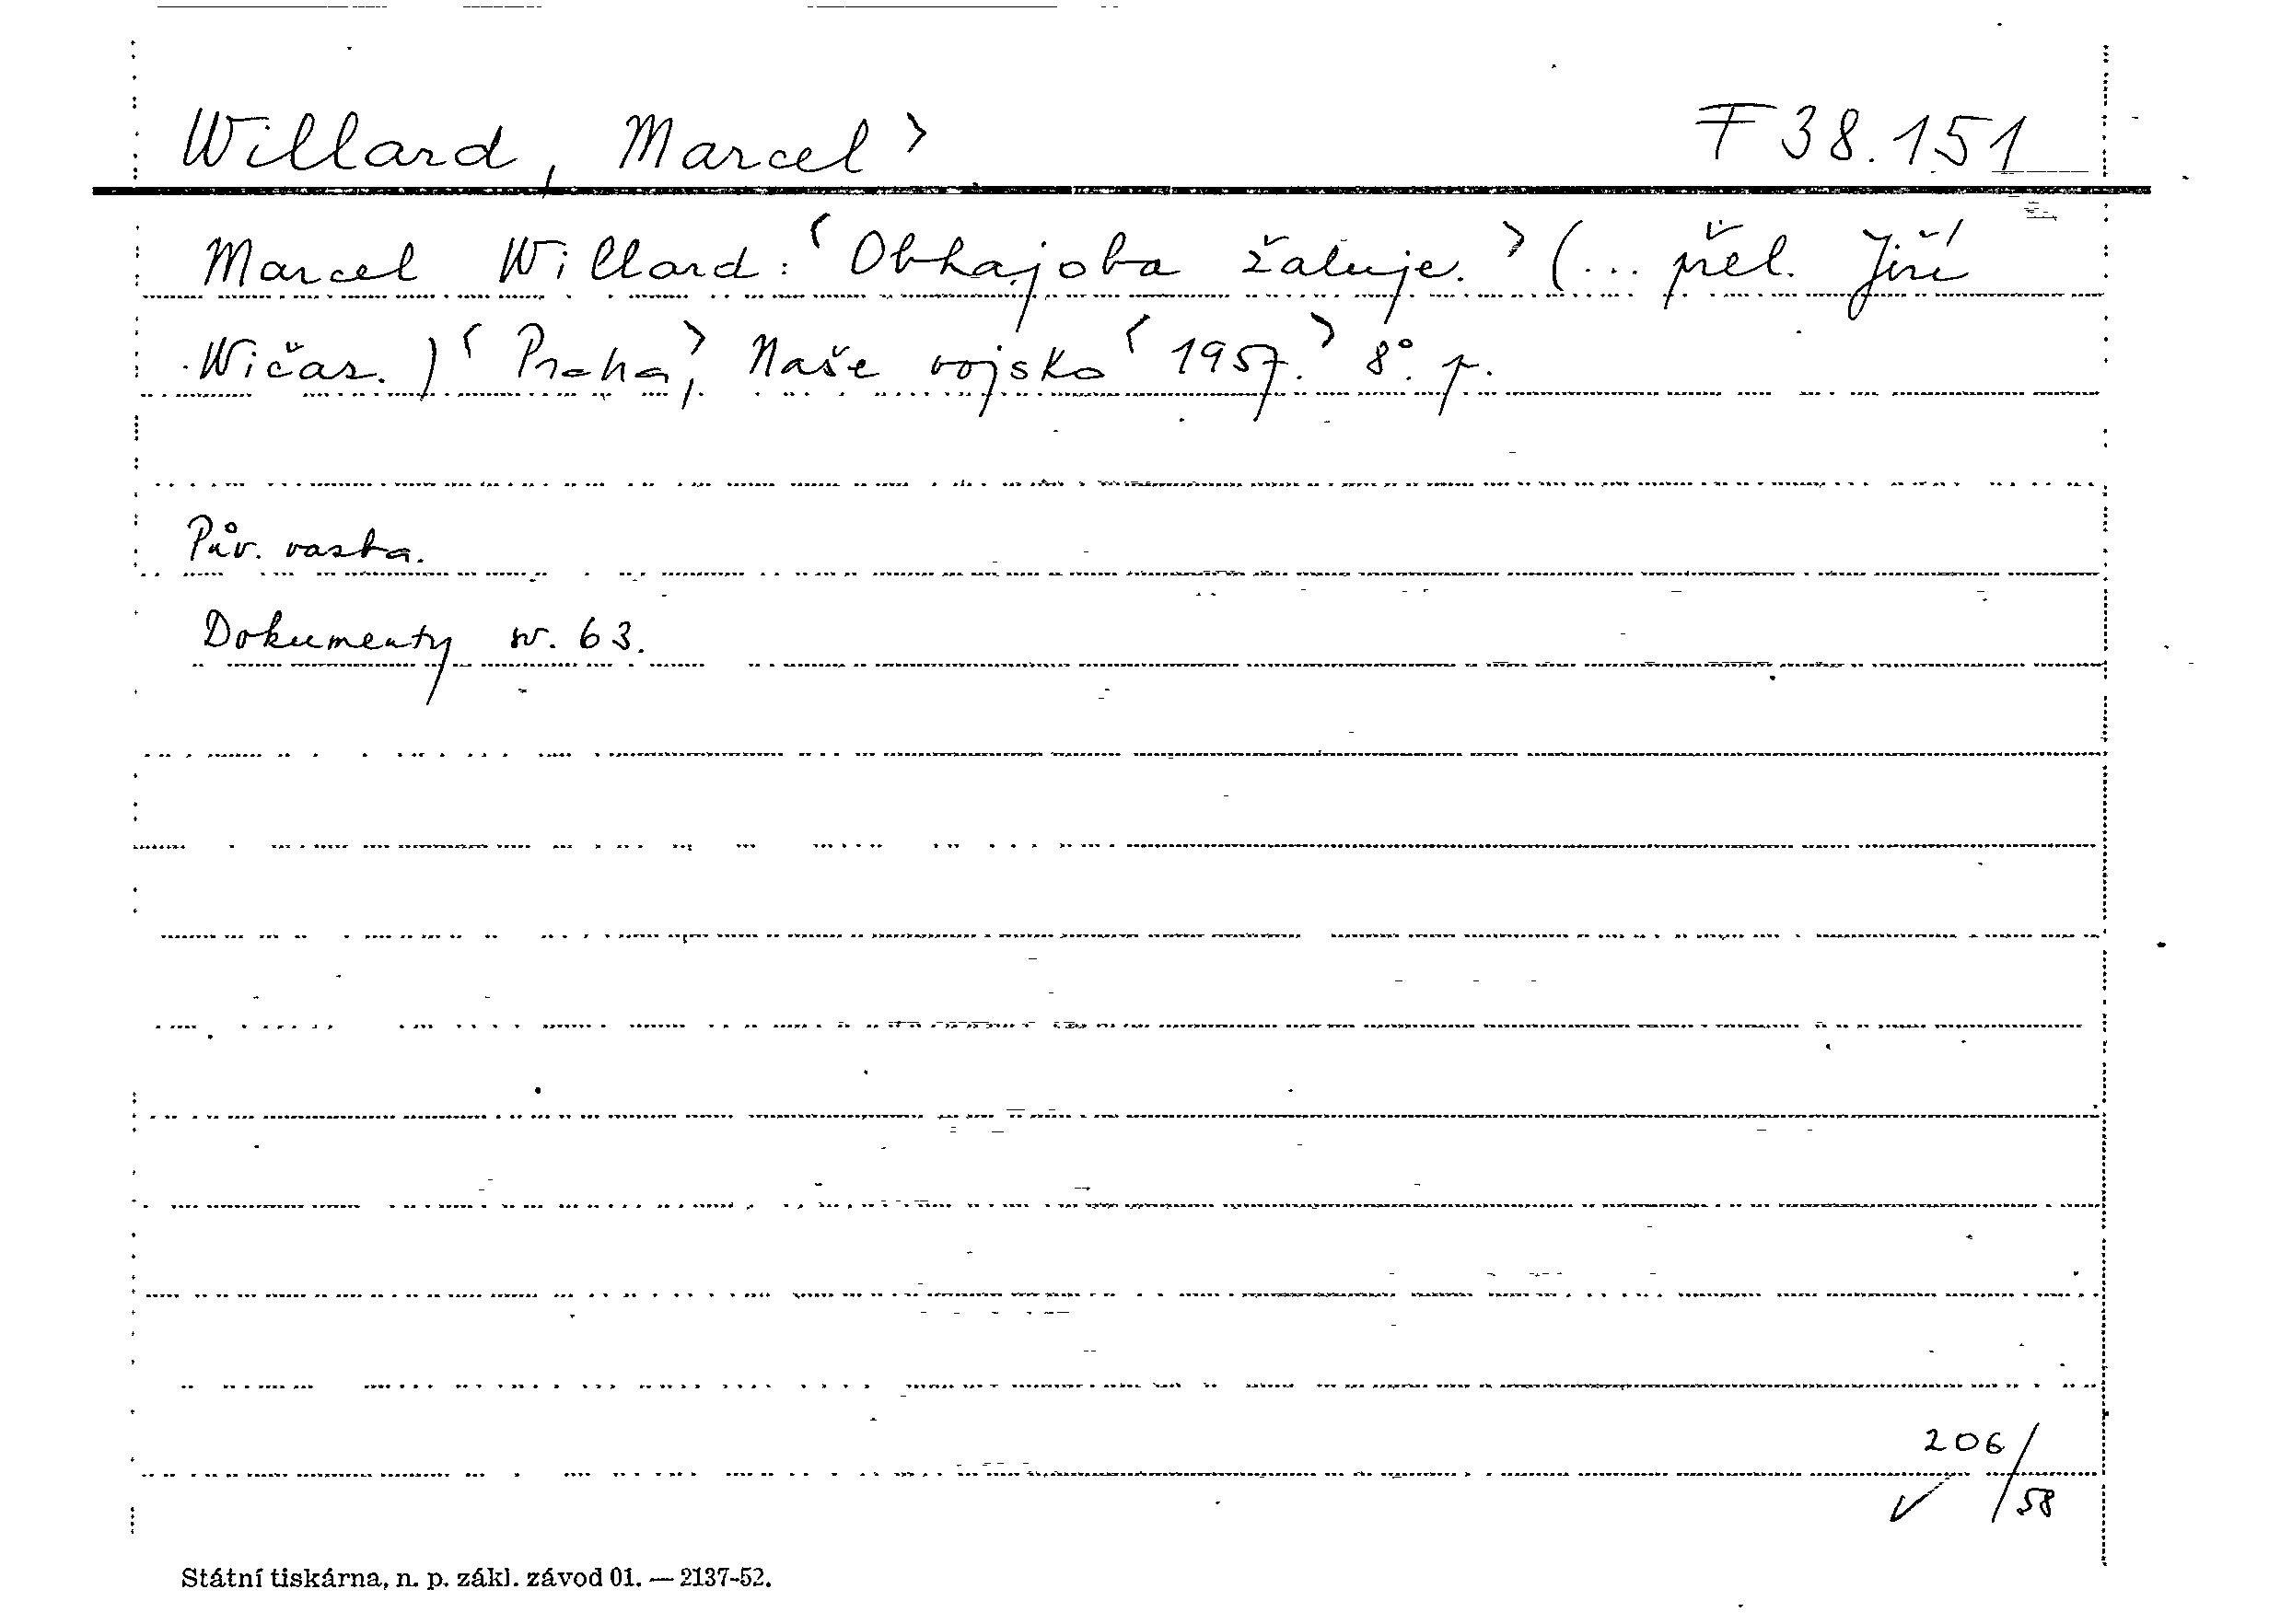 Willard, Marcel> F 38.151
Marcel Willard: <Obhajoba žaluje.> (... přel. Jiří
Wičar.) <Praha,> Naše vojsko <1957.> 8°. p.
Pův. vazba.
Dokumenty sv. 63.
206/58
✓
Státní tiskárna, n. p. zákl. závod 01. — 2137-52.